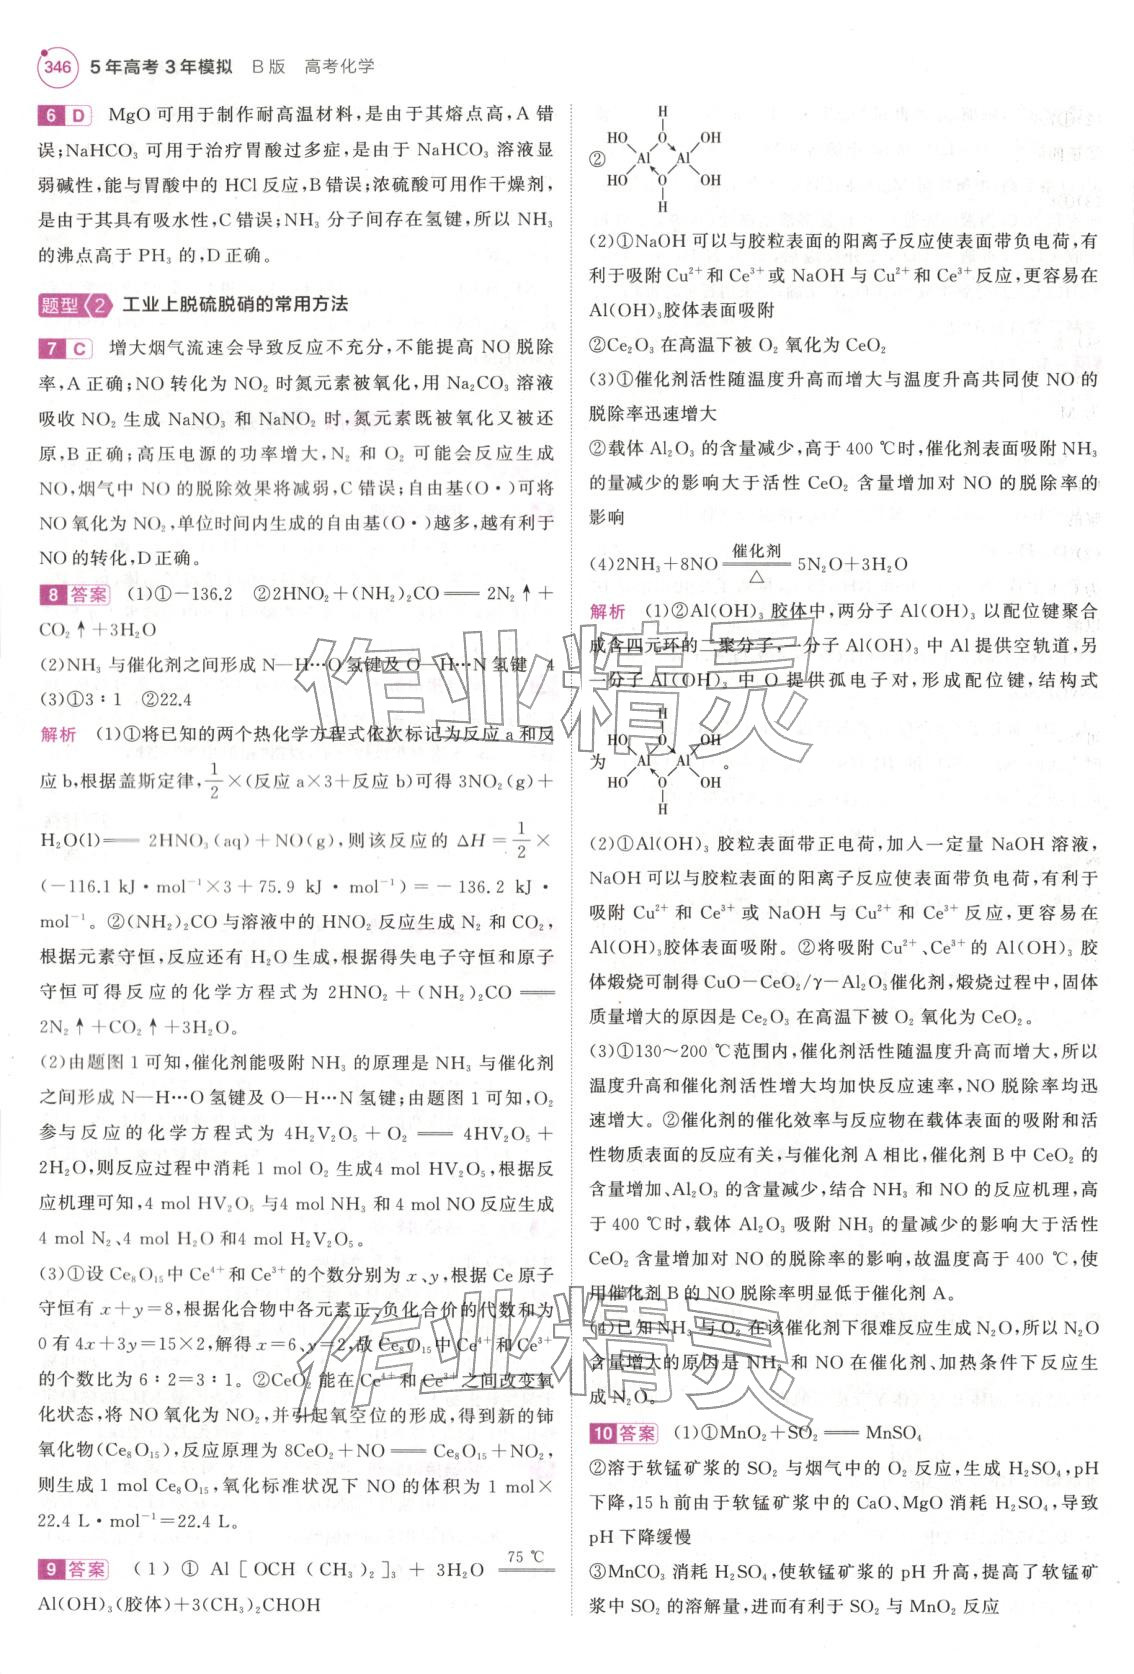 346 5年高考3年模拟 B版 高考化学
6 D MgO 可用于制作耐高温材料,是由于其熔点高,A 错
误;NaHCO₃ 可用于治疗胃酸过多症,是由于 NaHCO₃ 溶液显
弱碱性,能与胃酸中的 HCl 反应,B错误;浓硫酸可用作干燥剂,
是由于其具有吸水性,C 错误;NH₃ 分子间存在氢键,所以 NH₃
的沸点高于 PH₃ 的,D正确。
题型2 工业上脱硫脱硝的常用方法
7 C 增大烟气流速会导致反应不充分,不能提高 NO 脱除
率,A 正确;NO 转化为 NO₂ 时氮元素被氧化,用 Na₂CO₃ 溶液
吸收 NO₂ 生成 NaNO₃ 和 NaNO₂ 时,氮元素既被氧化又被还
原,B正确;高压电源的功率增大,N₂ 和 O₂ 可能会反应生成
NO,烟气中 NO 的脱除效果将减弱,C错误;自由基(O·)可将
NO 氧化为 NO₂,单位时间内生成的自由基(O·)越多,越有利于
NO 的转化,D正确。
8 答案 (1)①-136.2 ②2HNO₂+(NH₂)₂CO══2N₂↑+
CO₂↑+3H₂O
(2)NH₃ 与催化剂之间形成 N—H…O 氢键及 O—H…N 氢键 4
(3)①3∶1 ②22.4
解析 (1)①将已知的两个热化学方程式依次标记为反应 a 和反
应 b,根据盖斯定律,1/2×(反应 a×3+反应 b)可得 3NO₂(g)+
H₂O(l)══2HNO₃(aq)+NO(g),则该反应的 ΔH=1/2×
(-116.1 kJ·mol⁻¹×3+75.9 kJ·mol⁻¹)=-136.2 kJ·
mol⁻¹。②(NH₂)₂CO 与溶液中的 HNO₂ 反应生成 N₂ 和 CO₂,
根据元素守恒,反应还有 H₂O 生成,根据得失电子守恒和原子
守恒可得反应的化学方程式为 2HNO₂+(NH₂)₂CO══
2N₂↑+CO₂↑+3H₂O。
(2)由题图 1 可知,催化剂能吸附 NH₃ 的原理是 NH₃ 与催化剂
之间形成 N—H…O 氢键及 O—H…N 氢键;由题图 1 可知,O₂
参与反应的化学方程式为 4H₂V₂O₅+O₂══4HV₂O₅+
2H₂O,则反应过程中消耗 1 mol O₂ 生成4 mol HV₂O₅,根据反
应机理可知,4 mol HV₂O₅ 与4 mol NH₃ 和 4 mol NO反应生成
4 mol N₂、4 mol H₂O 和4 mol H₂V₂O₅。
(3)①设 Ce₈O₁₅中 Ce⁴⁺和 Ce³⁺的个数分别为 x、y,根据 Ce 原子
守恒有 x+y=8,根据化合物中各元素正、负化合价的代数和为
0 有 4x+3y=15×2,解得 x=6、y=2,故 Ce₈O₁₅中 Ce⁴⁺和 Ce³⁺
的个数比为 6∶2=3∶1。②CeO₂ 能在 Ce⁴⁺和 Ce³⁺之间改变氧
化状态,将 NO 氧化为 NO₂,并引起氧空位的形成,得到新的铈
氧化物(Ce₈O₁₅),反应原理为 8CeO₂+NO══Ce₈O₁₅+NO₂,
则生成 1 mol Ce₈O₁₅,氧化标准状况下 NO 的体积为 1 mol×
22.4 L·mol⁻¹=22.4 L。
9 答案 (1)①Al[OCH(CH₃)₂]₃+3H₂O ══75 ℃
Al(OH)₃(胶体)+3(CH₃)₂CHOH
H
HO O OH
② Al Al
HO O OH
H
(2)①NaOH 可以与胶粒表面的阳离子反应使表面带负电荷,有
利于吸附 Cu²⁺和 Ce³⁺或 NaOH 与 Cu²⁺和 Ce³⁺反应,更容易在
Al(OH)₃胶体表面吸附
②Ce₂O₃ 在高温下被 O₂ 氧化为 CeO₂
(3)①催化剂活性随温度升高而增大与温度升高共同使 NO 的
脱除率迅速增大
②载体 Al₂O₃ 的含量减少,高于 400 ℃时,催化剂表面吸附 NH₃
的量减少的影响大于活性 CeO₂ 含量增加对 NO 的脱除率的
影响
(4)2NH₃+8NO ══催化剂 △ 5N₂O+3H₂O
解析 (1)②Al(OH)₃ 胶体中,两分子 Al(OH)₃ 以配位键聚合
成含四元环的二聚分子,一分子 Al(OH)₃ 中 Al 提供空轨道,另
一分子 Al(OH)₃ 中 O 提供孤电子对,形成配位键,结构式
H
HO O OH
为 Al Al 。
HO O OH
H
(2)①Al(OH)₃ 胶粒表面带正电荷,加入一定量 NaOH 溶液,
NaOH 可以与胶粒表面的阳离子反应使表面带负电荷,有利于
吸附 Cu²⁺和 Ce³⁺或 NaOH 与 Cu²⁺和 Ce³⁺反应,更容易在
Al(OH)₃胶体表面吸附。②将吸附 Cu²⁺、Ce³⁺的 Al(OH)₃ 胶
体煅烧可制得 CuO—CeO₂/γ—Al₂O₃催化剂,煅烧过程中,固体
质量增大的原因是 Ce₂O₃ 在高温下被 O₂ 氧化为 CeO₂。
(3)①130~200 ℃范围内,催化剂活性随温度升高而增大,所以
温度升高和催化剂活性增大均加快反应速率,NO 脱除率均迅
速增大。②催化剂的催化效率与反应物在载体表面的吸附和活
性物质表面的反应有关,与催化剂 A 相比,催化剂 B 中 CeO₂ 的
含量增加、Al₂O₃ 的含量减少,结合 NH₃ 和 NO 的反应机理,高
于 400 ℃时,载体 Al₂O₃ 吸附 NH₃ 的量减少的影响大于活性
CeO₂ 含量增加对 NO 的脱除率的影响,故温度高于 400 ℃,使
用催化剂 B 的 NO 脱除率明显低于催化剂 A。
(4)已知 NH₃ 与 O₂ 在该催化剂下很难反应生成 N₂O,所以 N₂O
含量增大的原因是 NH₃ 和 NO 在催化剂、加热条件下反应生
成 N₂O。
10 答案 (1)①MnO₂+SO₂══MnSO₄
②溶于软锰矿浆的 SO₂ 与烟气中的 O₂ 反应,生成 H₂SO₄,pH
下降,15 h 前由于软锰矿浆中的 CaO、MgO 消耗 H₂SO₄,导致
pH 下降缓慢
③MnCO₃ 消耗 H₂SO₄,使软锰矿浆的 pH 升高,提高了软锰矿
浆中 SO₂ 的溶解量,进而有利于 SO₂ 与 MnO₂ 反应
作业精灵
作业精灵